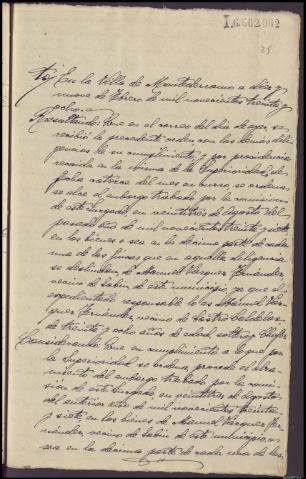 I.6.562.062
25
En la Villa de Montederramo a diez y
nueve de Febrero de mil novecientos treinta y
ocho.
Resultando: Que en el correo del dia de ayer, se
recibió la precedente orden con las demas dili-
gencias de su cumplimiento, y por providencia
recaida en la misma de la Superioridad, de
fecha catorce del mes en curso, se ordena
se alce el embargo trabado por la comision
de este Juzgado en veintitres de Agosto del
pasado año de mil novecientos treinta y siete
en los bienes o sea en la decima parte de cada
una de las fincas que en aquella diligencia
se deslindan, a Manuel Vazquez Fernández,
vecino de Sabín de este municipio ya que el
expedientado responsable lo es Manuel Vaz-
quez Fernández, vecino de Castro Caldelas
de treinta y ocho años de edad, soltero y Chofer
Considerando: Que en cumplimiento a lo que por
la Superioridad se ordena, procede el alza-
miento del embargo trabado por la comi-
sión de este Juzgado en veintitres de Agosto
del anterior año de mil novecientos treinta
y siete, en los bienes de Manuel Vazquez Fer-
nández, vecino de Sabín de este municipio, o
sea en la decima parte de cada una de las